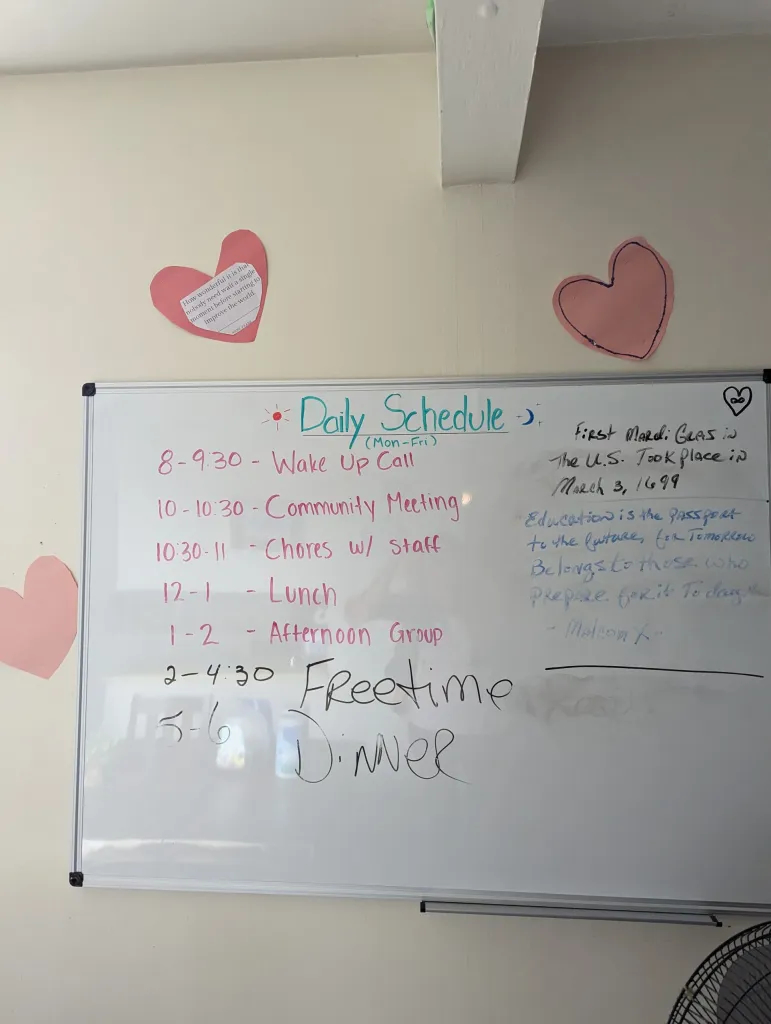 How wonderful it is that
nobody need wait a single
moment before starting to
improve the world.
Daily Schedule
(Mon-Fri)
8-9:30 - Wake Up Call
10-10:30 - Community Meeting
10:30-11 - Chores w/ Staff
12-1 - Lunch
1-2 - Afternoon Group
2-4:30 Freetime
5-6 Dinner
First Mardi Gras in
The U.S. Took place in
March 3, 1699
Education is the passport
to the future, for Tomorrow
Belongs to those who
prepare for it Today
- Malcom X -